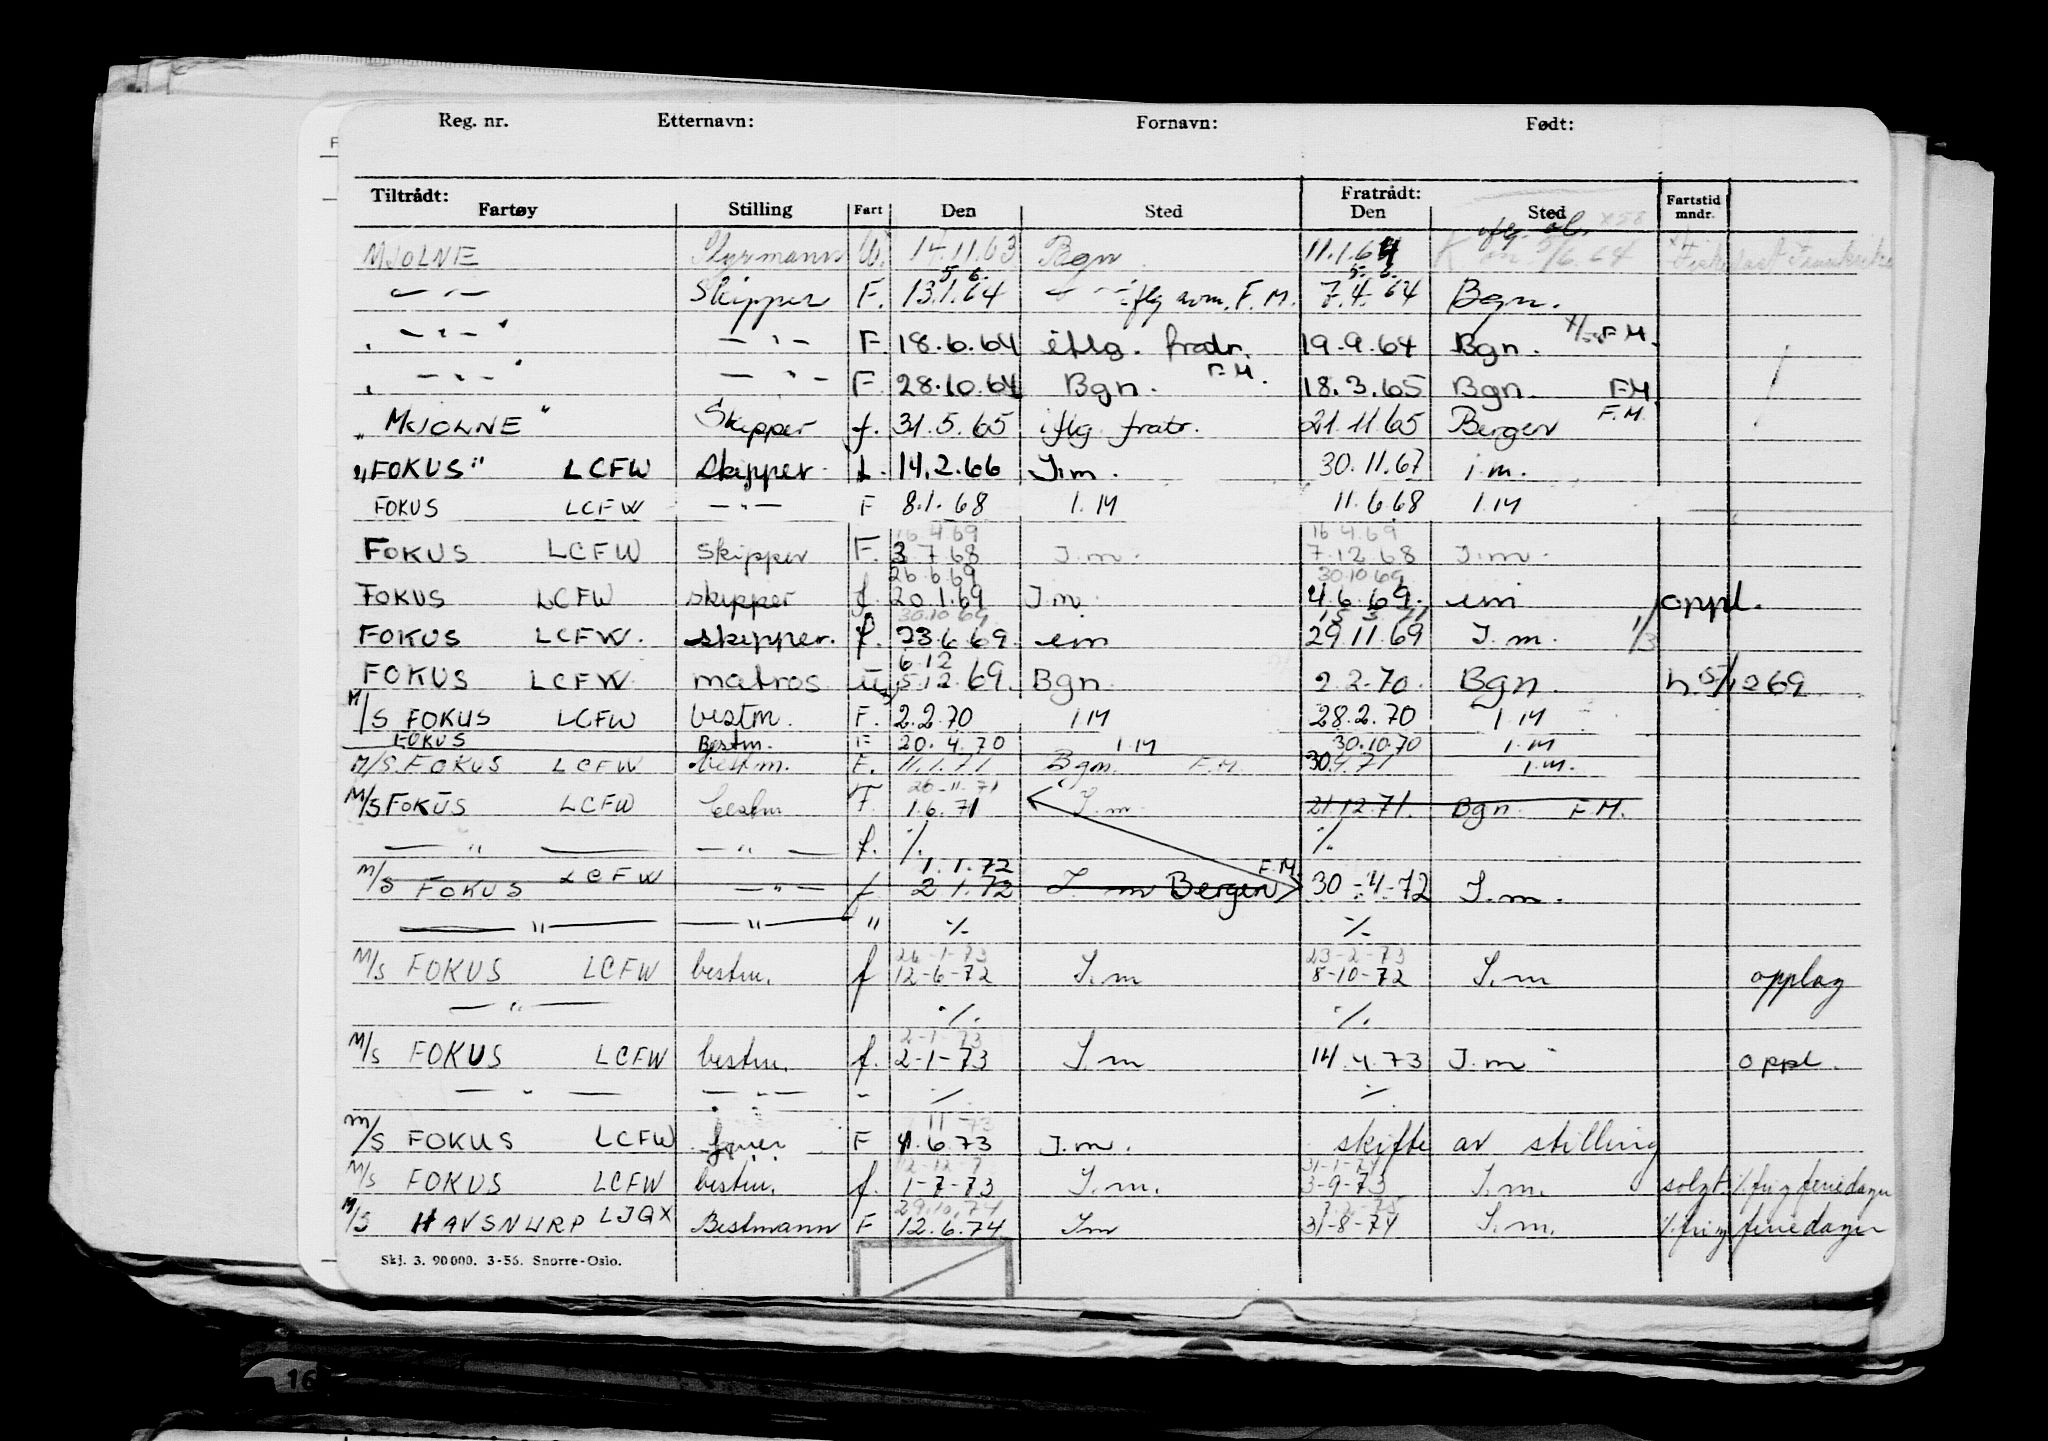 Reg. nr. Etternavn: Fornavn: Født:
Tiltrådt: Fratrådt:
Fartøy Stilling Fart Den Sted Den Sted Fartstid mndr.
MJOLNE Styrmann U. 14.11.63 Bgn 11.1.64
— " — Skipper F. 13.1.64 — " — iflg F.M. 7.4.64 Bgn.
5. 6. 5. 6.
" — " — " — " — F. 18.6.64 iflg. fratr. 19.9.64 Bgn. F.M.
" — " — " — " — F. 28.10.64 Bgn. F.M. 18.3.65 Bgn. FM
" MJOLNE " Skipper f. 31.5.65 iflg. fratr. 21.11.65 Bergen F.M.
"FOKUS" LCFW Skipper f. 14.2.66 I.m. 30.11.67 i.m.
FOKUS LCFW — " — F 8.1.68 I.M 11.6.68 I.M
16.4.69 16.4.69
FOKUS LCFW skipper F. 3.7.68 I.m. 7.12.68 I.m.
26.6.69 30.10.69
FOKUS LCFW skipper f. 20.1.69 I.m. 4.6.69. eim oppl.
30.10.69
FOKUS LCFW. skipper. f. 23.6.69. eim 29.11.69 I.m. 1/3
6.12
FOKUS LCFW matros u 5.12.69. Bgn 2.2.70. Bgn. h. 5/12 69
M/S FOKUS LCFW bestm. F. 2.2.70 I M 28.2.70 I M
FOKUS Bestm. F 20.4.70 I M 30.10.70 I.M
M/S FOKUS LCFW bestm. F. 11.1.71 Bgn. F.M. 30.4.71 I.m.
26-11-71
M/S FOKUS LCFW bestm F. 1.6.71 I.m. 21.12.71. Bgn. F.M.
— " — — " — f. ./. ./.
1.1.72 F.M.
M/S FOKUS LCFW — " — f 2.1.72 I m Bergen 30-4-72 I.m.
— " — — " — " ./. ./.
26-1-73 23-2-73
M/S FOKUS LCFW bestm. f 12-6-72 I.m 8-10-72 I.m opplag
— " — ./. ./.
2-1-73
M/S FOKUS LCFW bestm. f. 2-1-73 I.m 14.4.73 I.m oppl.
— " — — " — " ./. ./.
11-73
M/S FOKUS LCFW F 4.6.73 I.m. skifte av stilling
31-1-74
M/S FOKUS LCFW bestm. f. 1-7-73 I.m. 3-9-73 I.m. solgt. ./. fri og feriedager
29.10.74
M/S HAVSNURP LJGX Bestmann F 12.6.74 Im 31-8-74 I.m. ./. fri og feriedager
Skj. 3. 90000. 3-56. Snorre-Oslo.
16